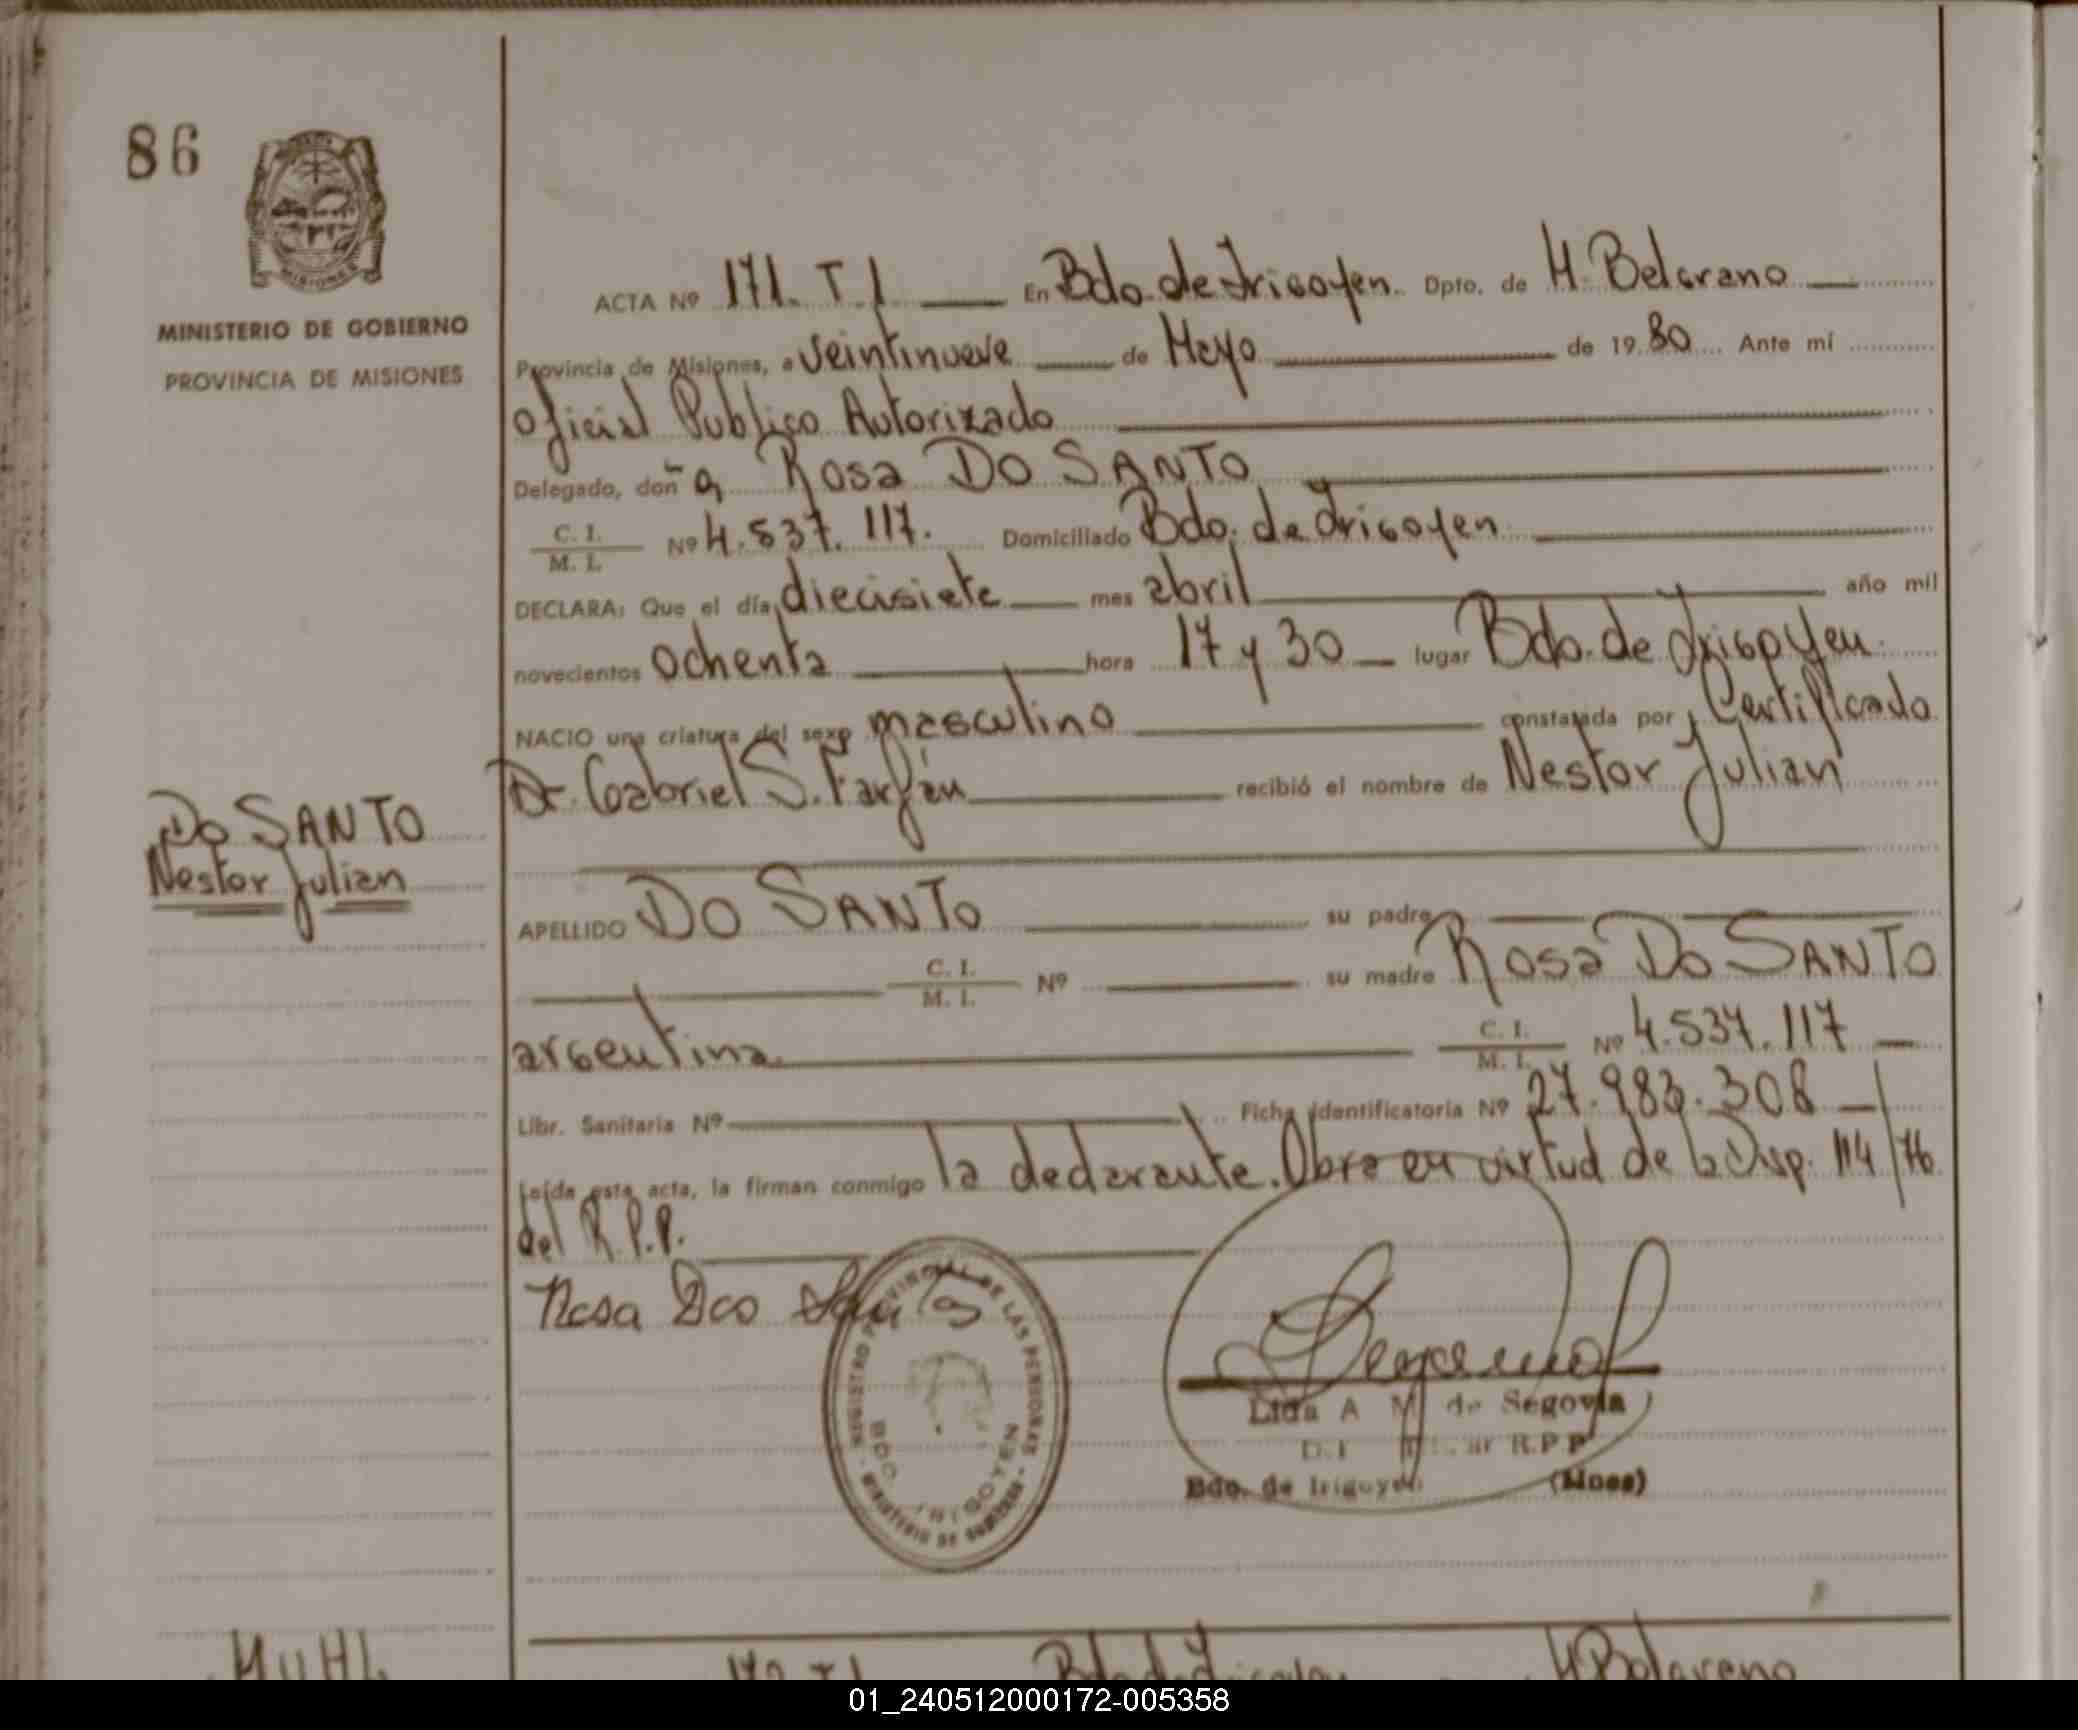 86
MINISTERIO DE GOBIERNO
PROVINCIA DE MISIONES
ACTA Nº 171. T. I En Bdo. de Irigoyen. Dpto. de M. Belgrano
Provincia de Misiones, a veintinueve de Mayo de 19 80 Ante mí
Oficial Publico Autorizado
Delegado, doña Rosa DO SANTO
C. I.
M. I. Nº 4.537.117. Domiciliado Bdo. de Irigoyen
DECLARA: Que el día diecisiete mes abril año mil
novecientos ochenta hora 17 y 30 lugar Bdo. de Irigoyen.
NACIO una criatura del sexo masculino constatada por Certificado
Dr. Gabriel S. Farfán recibió el nombre de Nestor Julian
DO SANTO
Nestor Julian
APELLIDO DO SANTO su padre
C. I.
M. I. Nº su madre Rosa DO SANTO
argentina C. I.
M. I. Nº 4.537.117
Libr. Sanitaria Nº Ficha identificatoria Nº 27.983.308
Leída esta acta, la firman conmigo la declarante. Obra en virtud de la Disp. 114/76
del R.P.P.
Rosa Dos Santos
REGISTRO PROVINCIAL DE LAS PERSONAS
BDO. IRIGOYEN
MINISTERIO DE GOBIERNO
Lida A M de Segovia
R.P.P
Bdo. de Irigoyen (Mnes)
MUHL
172 T I Bdo. de Irigoyen M Belgrano
01_240512000172-005358